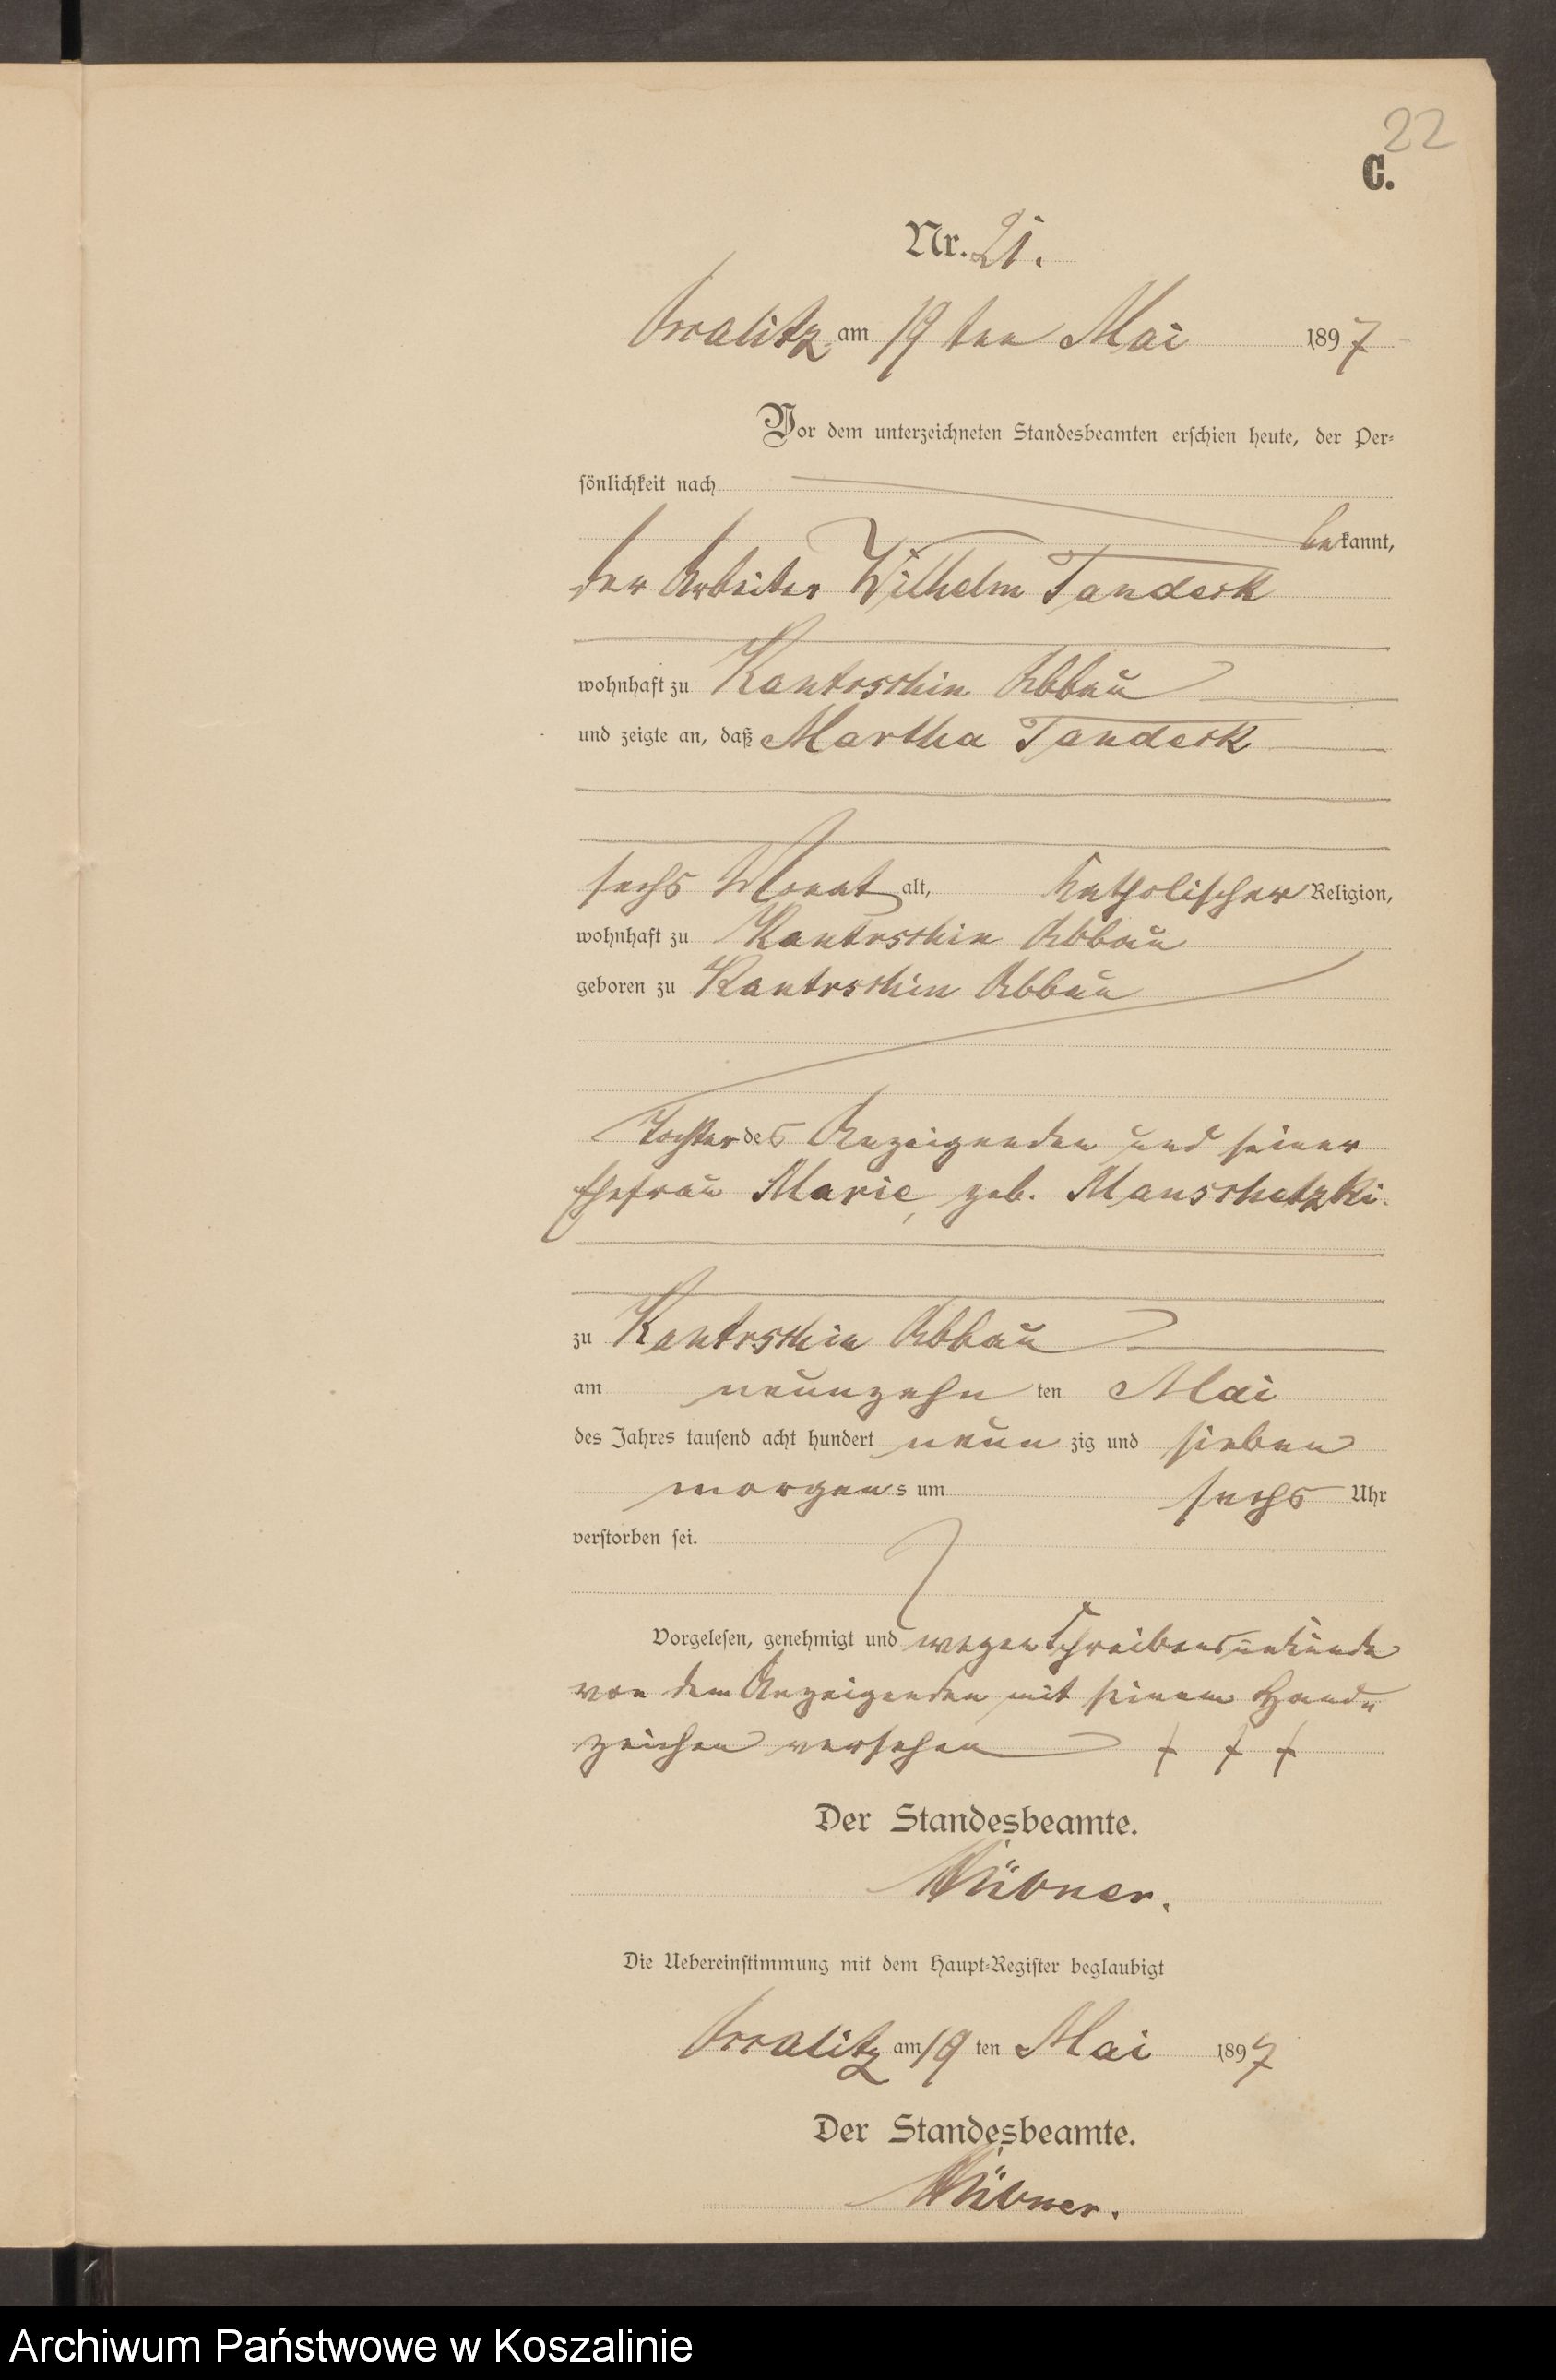 22
C.
Nr. 21.
am 19 ten Mai 1897
Vor dem unterzeichneten Standesbeamten erschien heute, der Per-
sönlichkeit nach
bekannt,
der Arbeiter Wilhelm Tandeck
wohnhaft zu Kantrschin Abbau
und zeigte an, daß Martha Tandeck
sechs Monat alt, katholischer Religion,
wohnhaft zu Kantrschin Abbau
geboren zu Kantrschin Abbau
Tochter des Anzeigenden und seiner
Ehefrau Marie, geb. Manschetzki.
zu Kantrschin Abbau
am neunzehn ten Mai
des Jahres tausend acht hundert neun zig und sieben
morgens um sechs Uhr
verstorben sei.
Vorgelesen, genehmigt und wegen Schreibensunkunde
von dem Anzeigenden mit seinem Hand-
zeichen versehen + + +
Der Standesbeamte.
Hübner.
Die Uebereinstimmung mit dem Haupt-Register beglaubigt
am 19 ten Mai 1897
Der Standesbeamte.
Hübner.
Archiwum Państwowe w Koszalinie